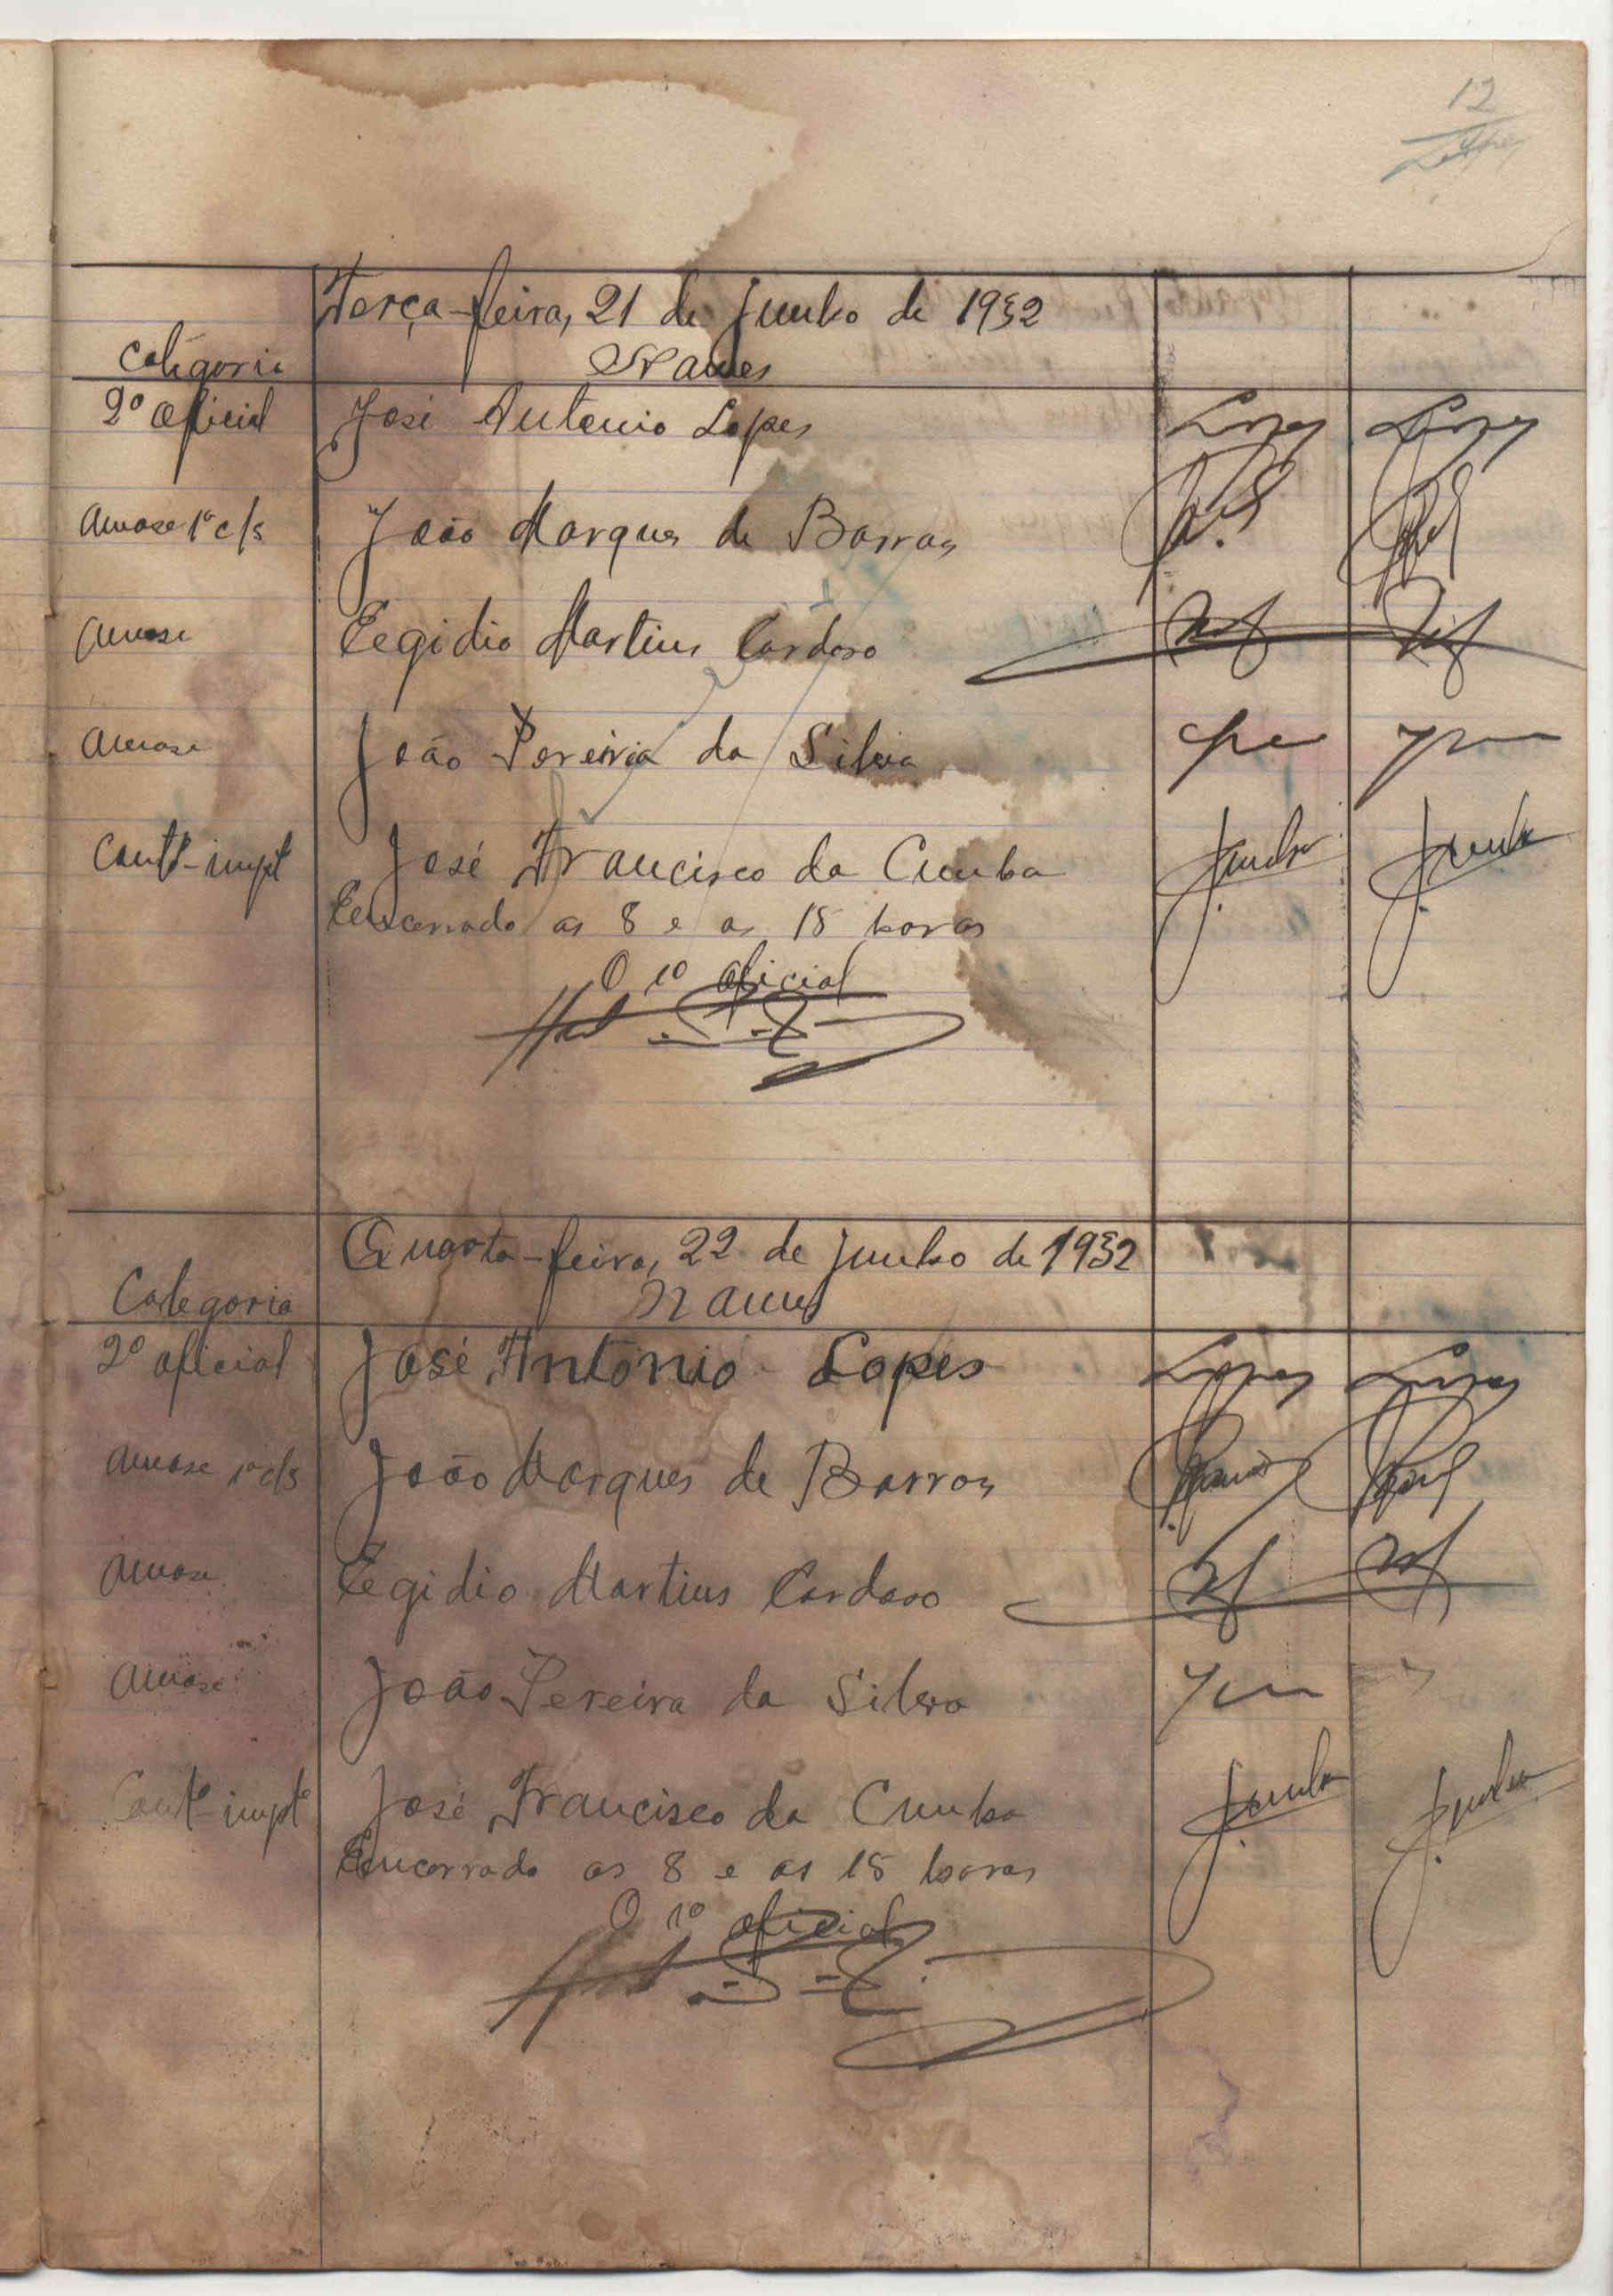 12
Terça-feira, 21 de Junho de 1932
Categoria Nomes
2º oficial José Antonio Lopes Lopes Lopes
Amase 1ª c/s João Marques de Barros
Amase Eegidio Martins Cardoso
Amase João Pereira da Silva
Contº-impt José Francisco da Cunha JCunha JCunha
Encerrado as 8 e as 15 horas
O 1º oficial
Quarta-feira, 22 de Junho de 1932
Categoria Nomes
2º oficial José António Lopes Lopes Lopes
Amase 1ª c/s João Marques de Barros
Amase Eegidio Martins Cardoso
Amase João Pereira da Silva
Contº-imptº José Francisco da Cunha JCunha JCunha
Encerrado as 8 e as 15 horas
O 1º oficial